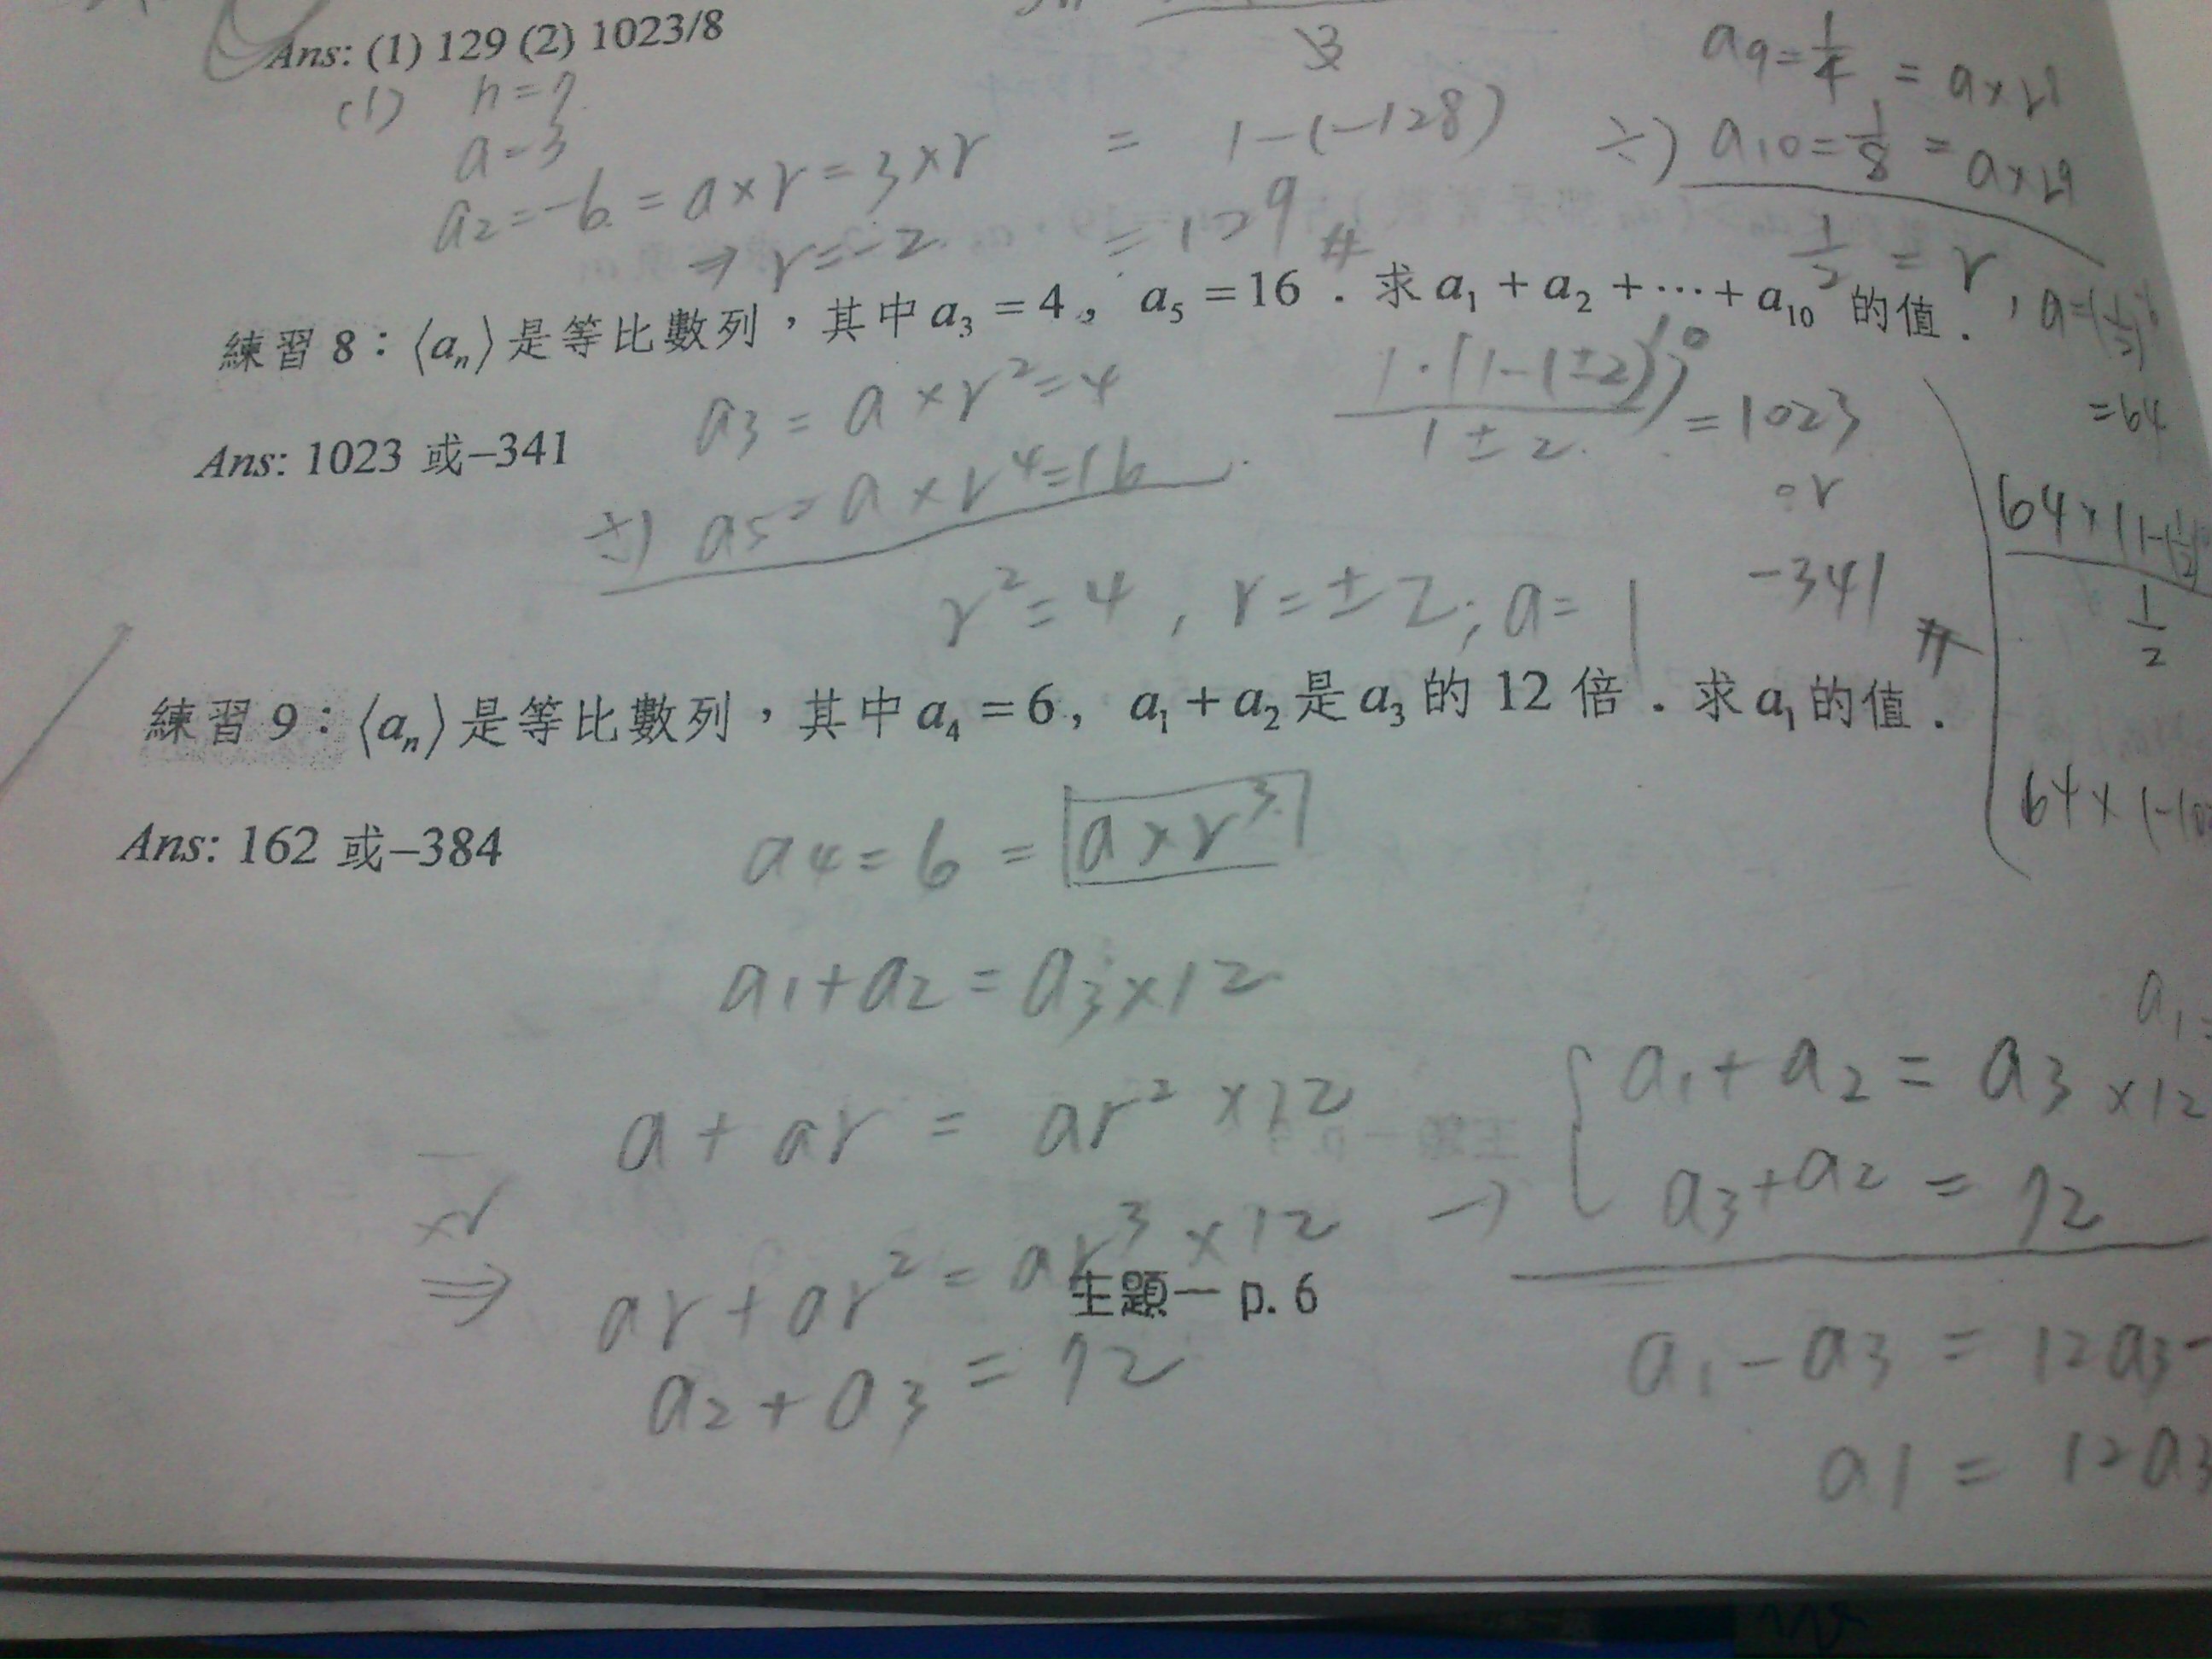 Ans: (1) 129 (2) 1023/8
(1) n=7
a=3
a2=-6=a×r=3×r
⇒ r=-2
3
= 1-(-128)
= 129 #
a9=1/4 = a×r8
÷) a10=1/8 = a×r9
1/2 = r, a=
=64
練習 8：⟨aₙ⟩是等比數列，其中 a₃ = 4， a₅ = 16 ．求 a₁ + a₂ + ⋯ + a₁₀ 的值．
Ans: 1023 或–341
a3 = a × r² = 4
÷) a5 = a × r⁴ = 16
r² = 4 , r = ± 2 ; a = 1
1·(1-(±2)¹⁰) / 1±2 = 1023
or
-341 #
64×(1-(1/2)
1/2
64×(-
練習 9：⟨aₙ⟩是等比數列，其中 a₄ = 6， a₁ + a₂ 是 a₃ 的 12 倍．求 a₁ 的值．
Ans: 162 或–384
a4 = 6 = a×r³
a1+a2 = a3×12
a + ar = ar² ×12
×r
⇒ ar + ar² = ar³ ×12
a2 + a3 = 72
→ { a1 + a2 = a3 ×12
a3 + a2 = 72
a1 - a3 = 12a3 -
a1 = 12a3
a1=
主題一 p. 6